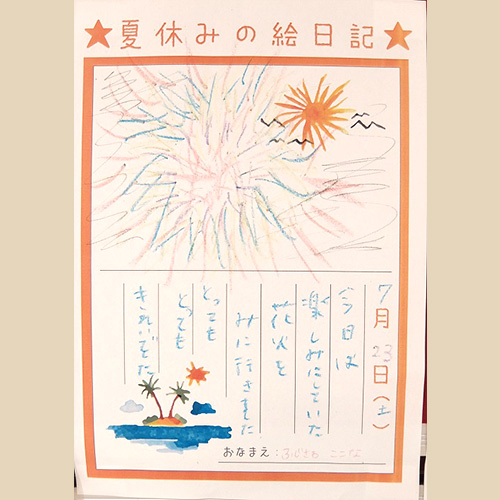 ★夏休みの絵日記★
7月23日(土)
今日は
楽しみにしていた
花火を
みに行きました
とっても
とっても
きれいでした
おなまえ:ふじさわ ここな